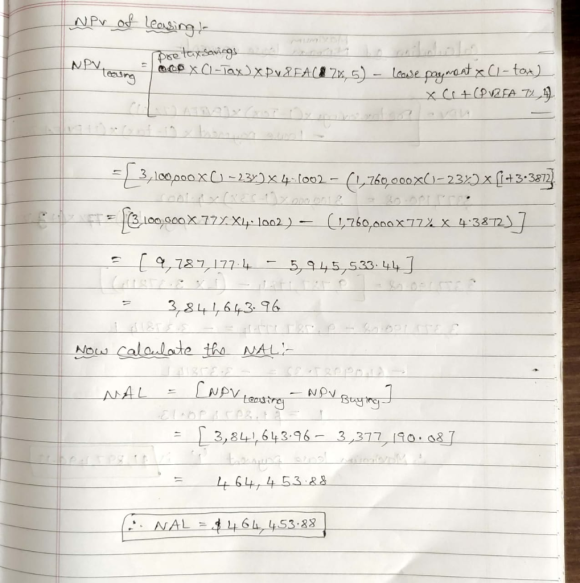 NPV of leasing:-
Pretax savings
NPV leasing = [ × (1-Tax) × PVIFA (7%, 5) - lease payment × (1-tax)
× (1 + (PVIFA 7%, 
= [3,100,000 × (1-23%) × 4.1002 - (1,760,000 × (1-23%) × [1+3.3872]
= [(3,100,000 × 77% × 4.1002) - (1,760,000 × 77% × 4.3872)]
= [9,787,177.4 - 5,945,533.44]
= 3,841,643.96
Now calculate the NAL:-
NAL = [NPV Leasing - NPV Buying]
= [3,841,643.96 - 3,377,190.08]
= 464,453.88
∴ NAL = $464,453.88